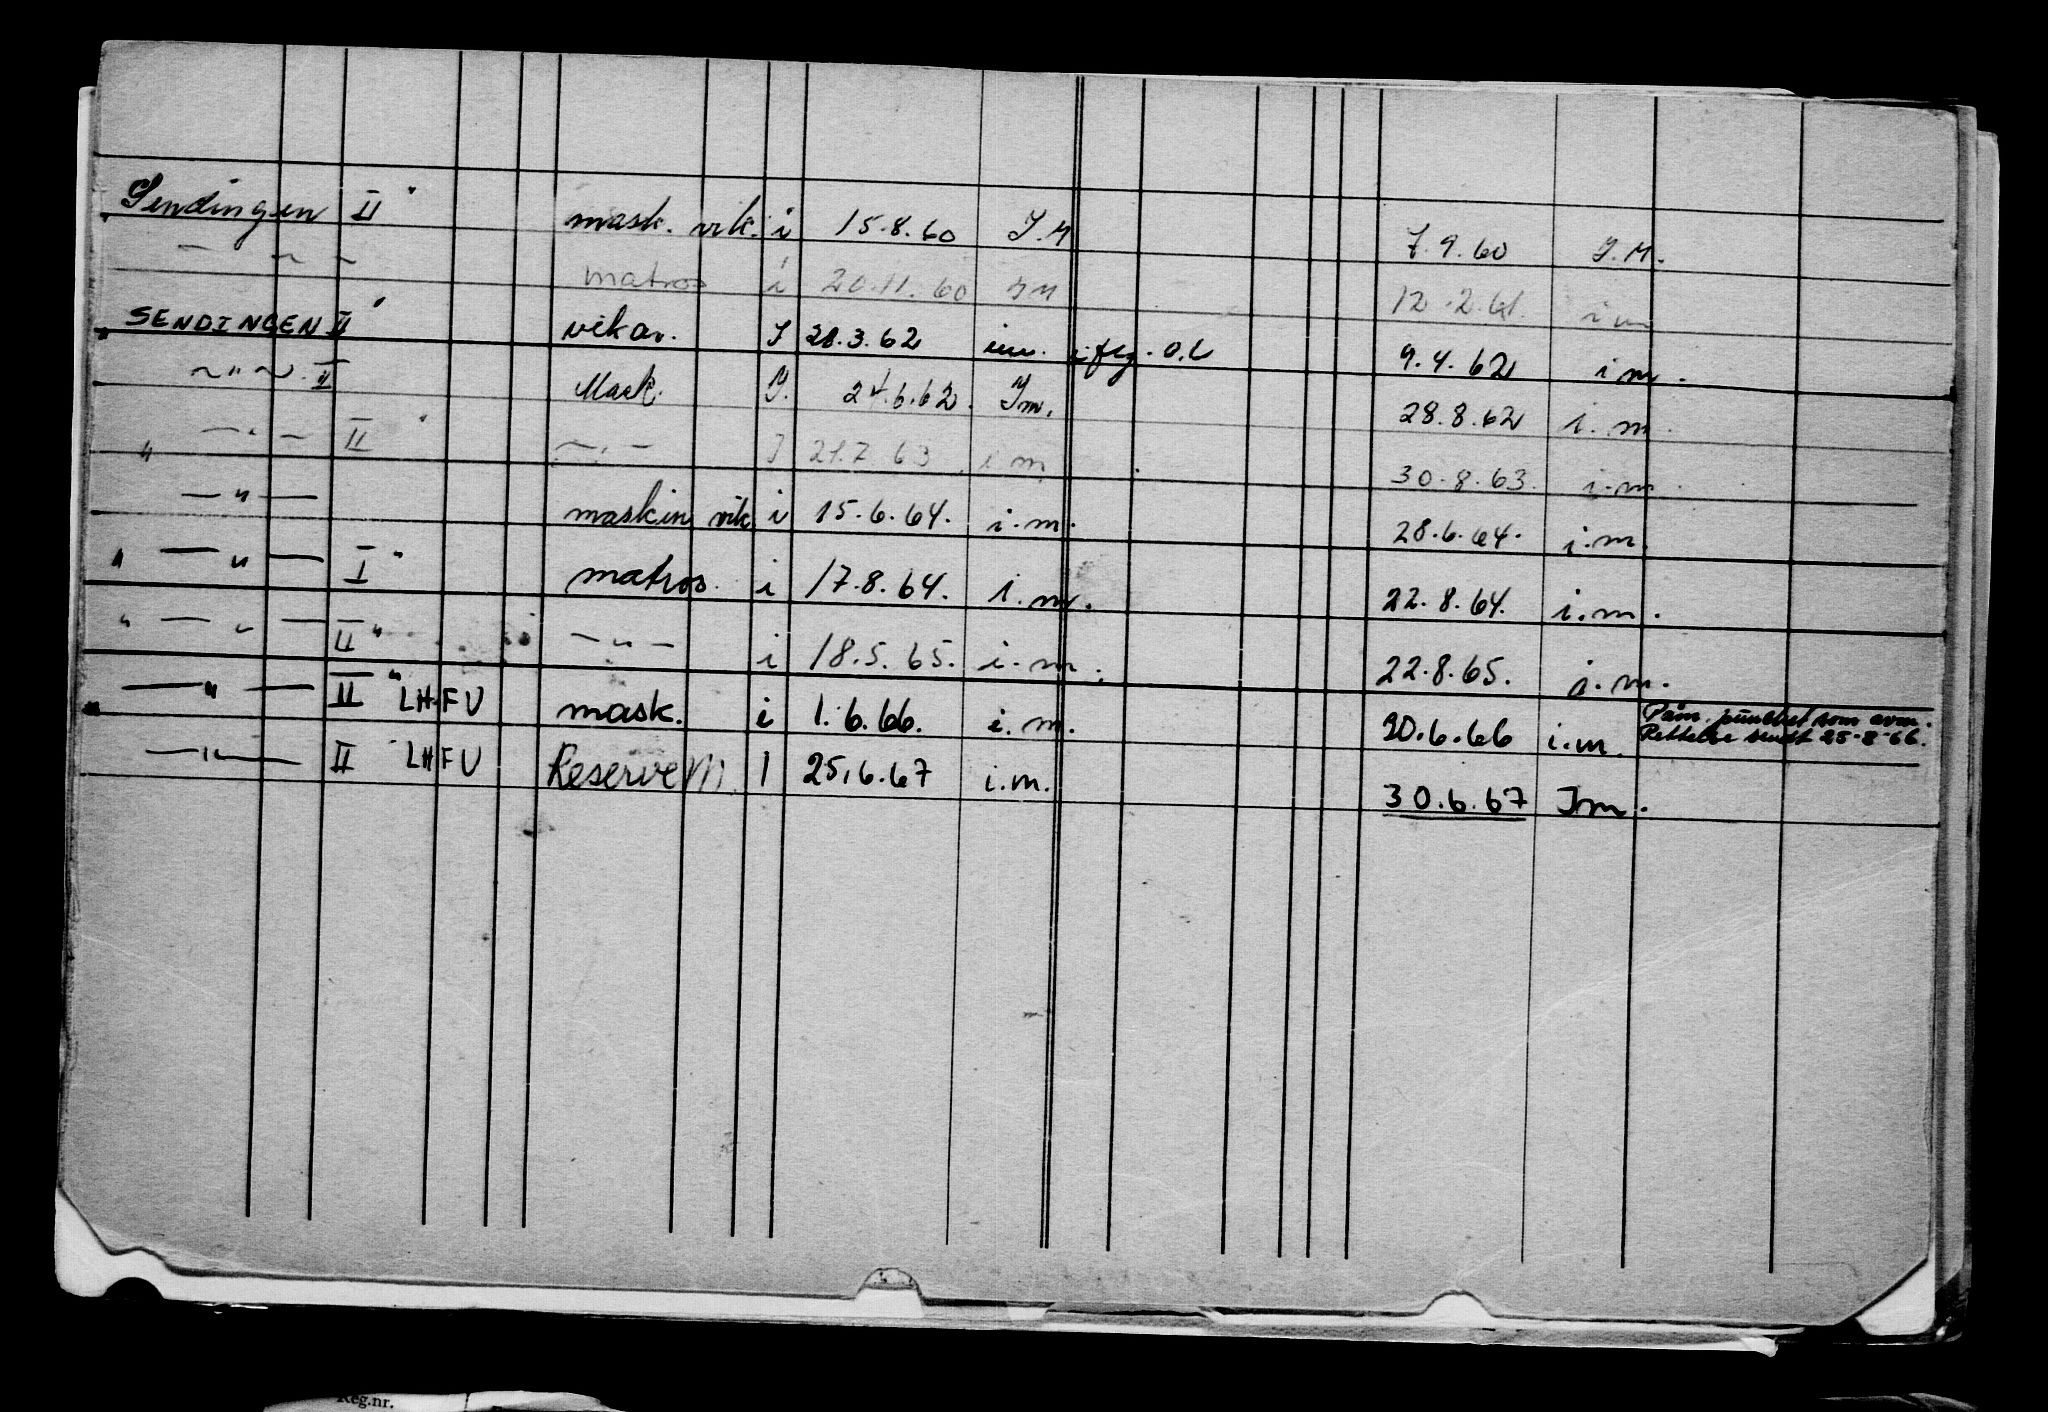 Sendingen II" mask. vik. i 15.8.60 I.M 7.9.60 I.M.
— ~ ~ matros i 20.11.60 I M 12.2.61. i m
SENDINGEN II" vikar. I 28.3.62 im. i flg. O.L 9.4.62 i m.
~ " ~ . II Mask. I. 24.6.62. Im. 28.8.62 i. m.
" — " — II " — " — I 21.7.63. i m 30.8.63. i.m.
— " — maskin vik i 15.6.64. i.m. 28.6.64. i.m.
" — " — I" matros. i 17.8.64. i.m. 22.8.64. i.m.
" — " — II" — " — i 18.5.65. i.m. 22.8.65. i.m.
— " — II" LHFU mask. i 1.6.66. i.m. 30.6.66 i.m. som
Rettelse sendt 25-8-66.
— " — II " LHFU Reserve M. I 25.6.67 i.m. 30.6.67 Im.
Reg.nr.